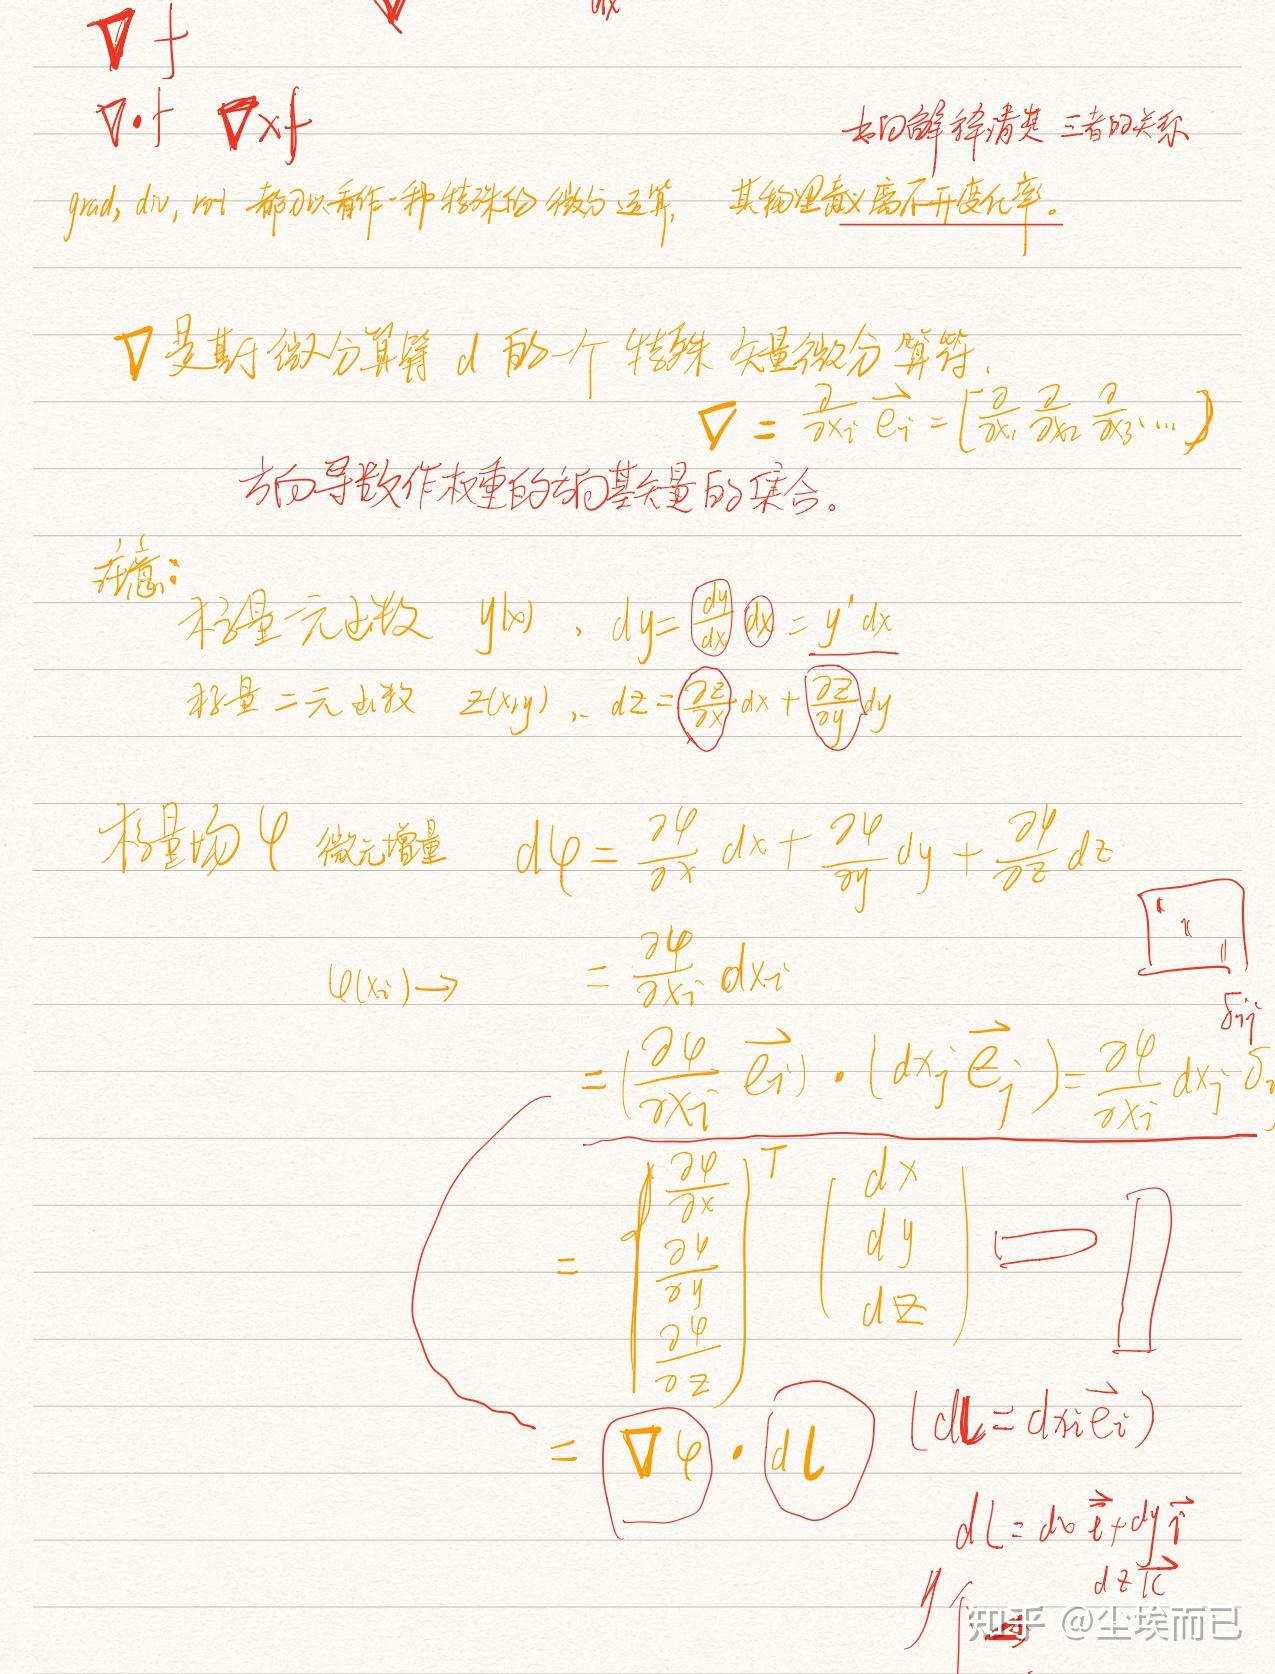 dx
∇f
∇·f ∇×f
如何解释清楚三者的关系
grad, div, rot 都可以看作一种特殊的微分运算, 其物理意义离不开变化率。
∇是基于微分算符 d 的一个特殊矢量微分算符.
∇ = ∂/∂xᵢ e⃗ᵢ = [∂/∂x₁ ∂/∂x₂ ∂/∂x₃ ...]
方向导数作权重的方向基矢量的集合。
注意:
标量一元函数 y(x), dy = dy/dx dx = y'dx
标量二元函数 z(x,y), dz = ∂z/∂x dx + ∂z/∂y dy
标量场φ 微元增量 dφ = ∂φ/∂x dx + ∂φ/∂y dy + ∂φ/∂z dz
φ(xᵢ) → = ∂φ/∂xᵢ dxᵢ
δᵢⱼ
= (∂φ/∂xᵢ e⃗ᵢ)·(dxⱼ e⃗ⱼ) = ∂φ/∂xᵢ dxⱼ δ
= (∂φ/∂x ∂φ/∂y ∂φ/∂z)ᵀ (dx dy dz)
= ∇φ · dl
(dl = dxᵢ e⃗ᵢ)
dl = dx i⃗ + dy j⃗
dz k⃗
知乎 @尘埃而已